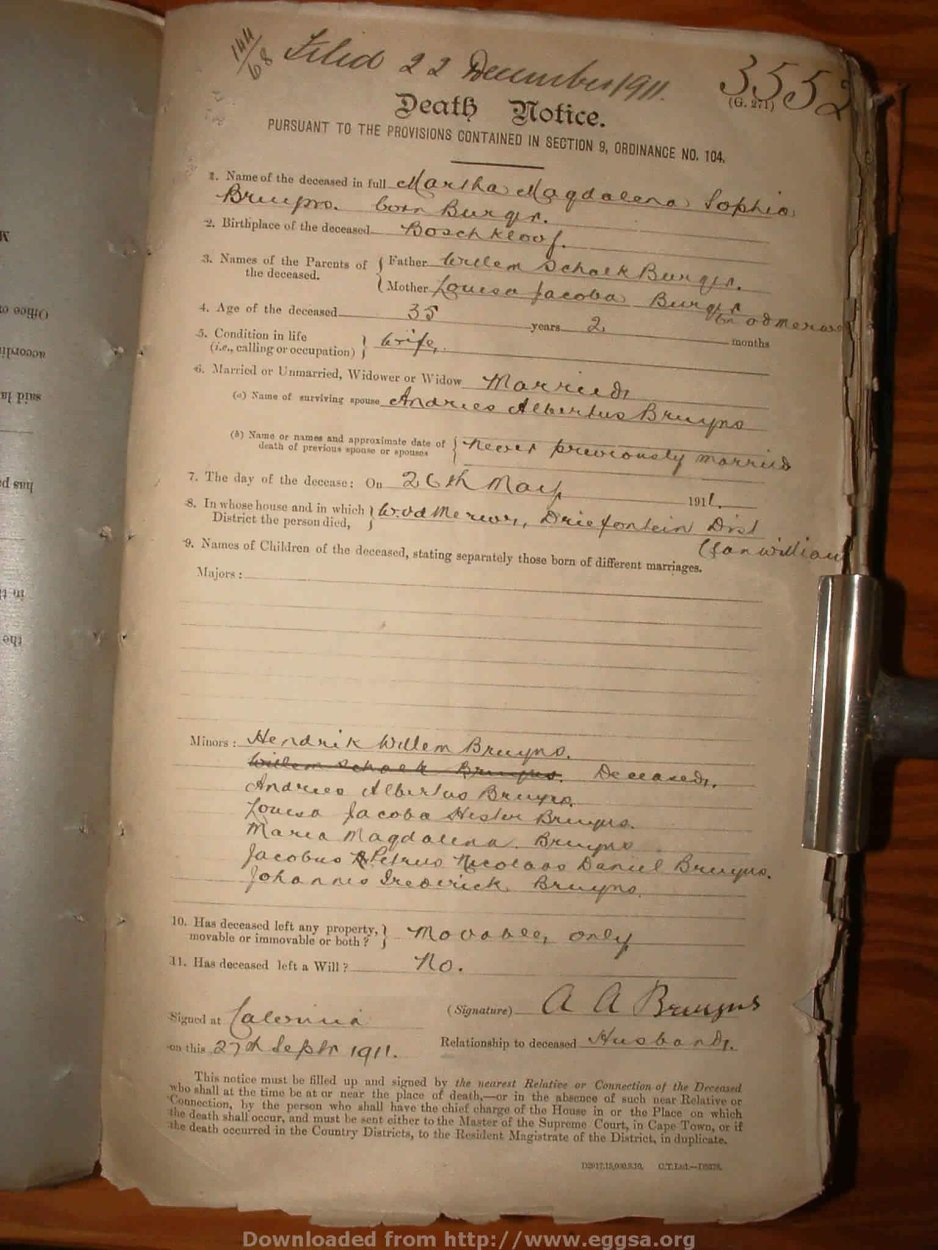 144/68
Filed 22 December 1911.
3552
(G. 271)
Death Notice.
PURSUANT TO THE PROVISIONS CONTAINED IN SECTION 9, ORDINANCE NO. 104.
1. Name of the deceased in full Martha Magdalena Sophia
Bruyns. born Burger.
2. Birthplace of the deceased Boschkloof.
3. Names of the Parents of the deceased. { Father Willem Schalk Burger.
{ Mother Louisa Jacoba Burger
4. Age of the deceased 35 years 2 months
5. Condition in life (i.e., calling or occupation) } Wife.
6. Married or Unmarried, Widower or Widow Married
(a) Name of surviving spouse Andries Albertus Bruyns
(b) Name or names and approximate date of death of previous spouse or spouses { never previously married
7. The day of the decease: On 26th May 1911.
8. In whose house and in which District the person died, } Driefontein Dist
Clanwilliam
9. Names of Children of the deceased, stating separately those born of different marriages.
Majors:
Minors: Hendrik Willem Bruyns.
Willem Schalk Bruyns. Deceased.
Andries Albertus Bruyns.
Louisa Jacoba Hester Bruyns.
Maria Magdalena Bruyns
Jacobus Petrus Nicolaas Daniel Bruyns.
Johannes Frederick Bruyns.
10. Has deceased left any property, movable or immovable or both? } Movable, only
11. Has deceased left a Will? No.
Signed at Calvinia (Signature) A A Bruyns
on this 27th Septr 1911. Relationship to deceased Husband.
This notice must be filled up and signed by the nearest Relative or Connection of the Deceased
who shall at the time be at or near the place of death,—or in the absence of such near Relative or
Connection, by the person who shall have the chief charge of the House in or the Place on which
the death shall occur, and must be sent either to the Master of the Supreme Court, in Cape Town, or if
the death occurred in the Country Districts, to the Resident Magistrate of the District, in duplicate.
Downloaded from http://www.eggsa.org